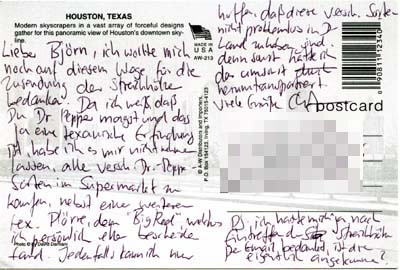 HOUSTON, TEXAS
Modern skyscrapers in a vast array of forceful designs
gather for this panoramic view of Houston's downtown sky-
line.
Liebe Björn, ich wollte mich
noch auf diesem Wege für die
Zusendung der Streichhölzer
bedanken. Da ich weiß daß
Du Dr Pepper magst und das
ja eine texanische Erfindung
ist, habe ich es mir nicht nehmen
lassen, alle versch. Dr. Pepper
Sorten im Supermarkt zu
kaufen, nebst einer weiteren
tex. Plörre, dem "Big Red" welches
ich persönlich eher bescheiden
fand. Jedenfalls kann ich nur
Photo © by David Damiani
MADE IN
USA
AW-213
© A-W Distributors and Importers,
P.O. Box 154123, Irving, TX 75015-4123
hoffen, daß diese versch. Sorten
nicht problemlos in D
Land zu haben sind.
denn sonst hätte ich
das umsonst
herumtransportiert
Viele Grüße
postcard
PS: ich hatte mich ja nach
Eintreffen der Streichhölzer
per Email bedankt, ist die
eigentlich angekommen?